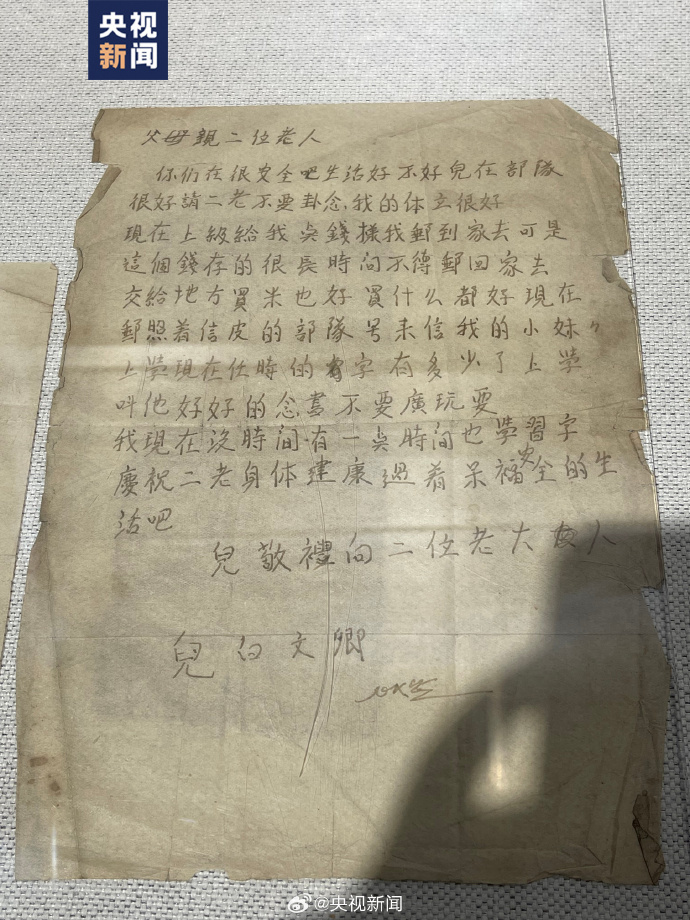 央视
新闻
父母親二位老人
你们在很安全吧生活好不好兒在部隊
很好請二老不要卦念我的体立很好
現在上級給我吳錢樣我郵到家去可是
這個錢存的很長時间不得郵回家去
交給地方買米也好買什么都好現在
郵照着信皮的部隊号来信我的小妹〃
上學現在仕時的字有多少了上學
叫他好好的念書不要廣玩要
我現在没時間有一吳時间也學習字
慶祝二老身体建康過着呆福安全的生
活吧
兒敬禮向二位老大人
兒白文卿
@央视新闻